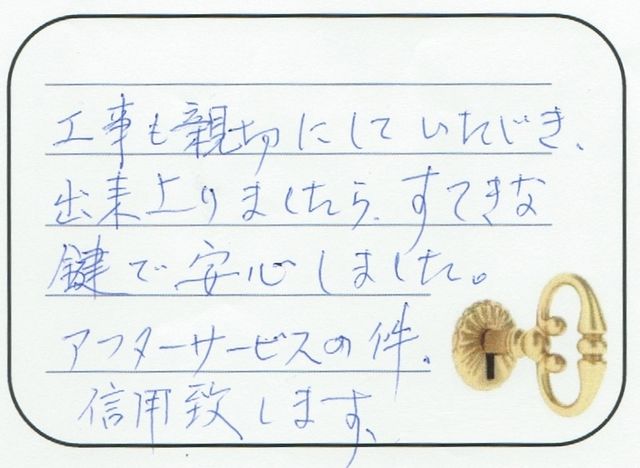 工事も親切にしていただき、
出来上りましたら、すてきな
鍵で安心しました。
アフターサービスの件、
信用致します、